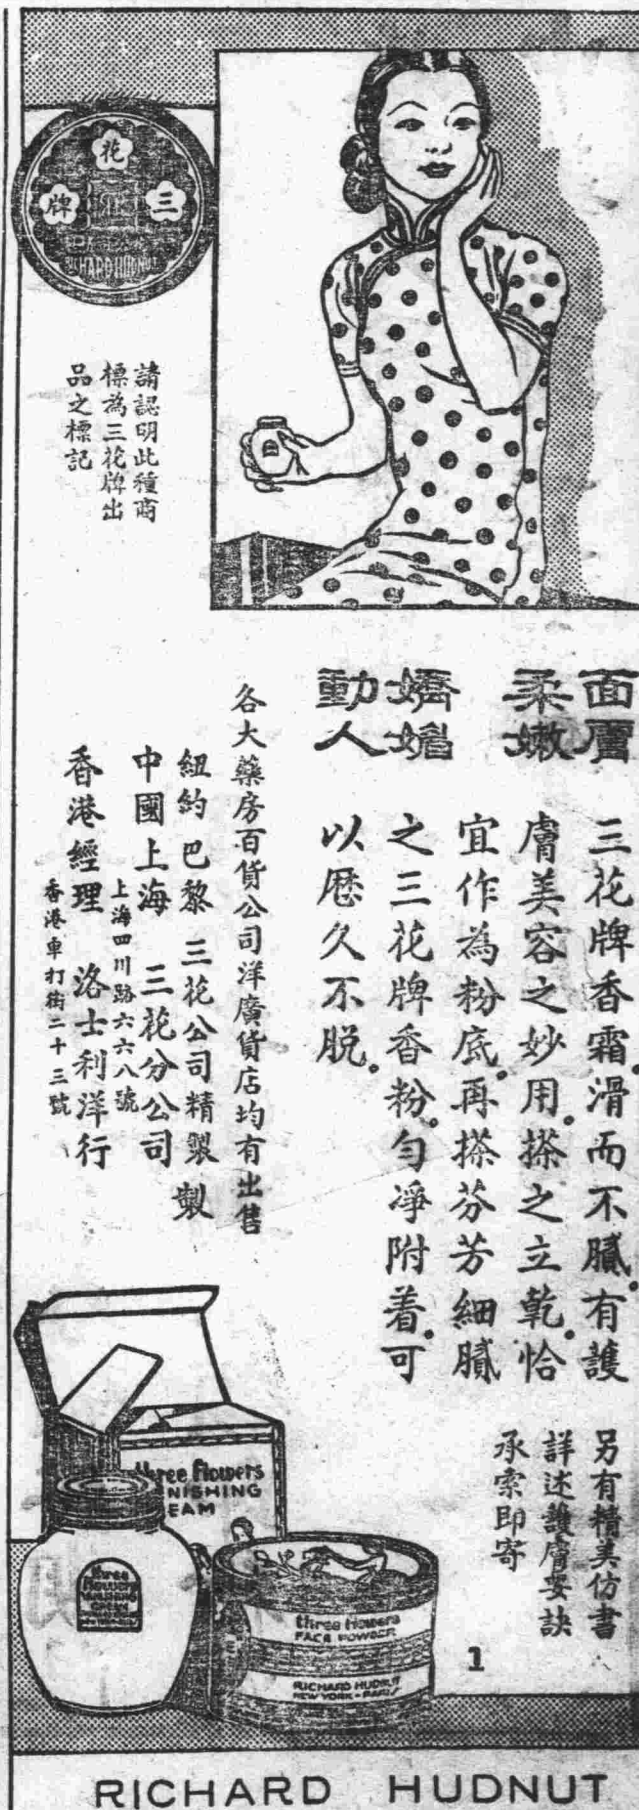 三花牌
RICHARD HUDNUT
請認明此種商
標為三花牌出
品之標記
面膚
柔嫩
嬌媚
動人
三花牌香霜.滑而不膩.有護
膚美容之妙用.搽之立乾.恰
宜作為粉底.再搽芬芳細膩
之三花牌香粉.勻淨附着.可
以歷久不脫.
另有精美仿書
詳述護膚要訣
承索即寄
各大藥房百貨公司洋廣貨店均有出售
紐約巴黎 三花公司精製
中國上海 三花分公司
上海四川路六六八號
香港經理 洛士利洋行
香港車打街二十三號
three flowers
VANISHING
CREAM
three flowers
three flowers
FACE POWDER
RICHARD HUDNUT
NEW YORK - PARIS
1
RICHARD HUDNUT